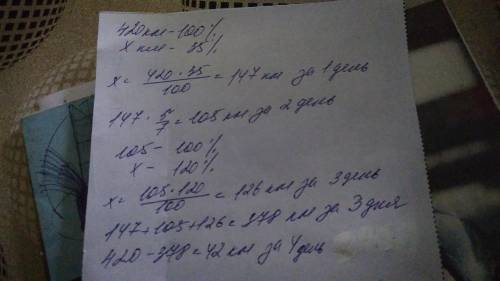 420 км - 100%
x км - 35%
x = 420 · 35 / 100 = 147 км за 1 день
147 · 5/7 = 105 км за 2 день
105 - 100%
x - 120%
x = 105 · 120 / 100 = 126 км за 3 день
147 + 105 + 126 = 378 км за 3 дня
420 - 378 = 42 км за 4 день